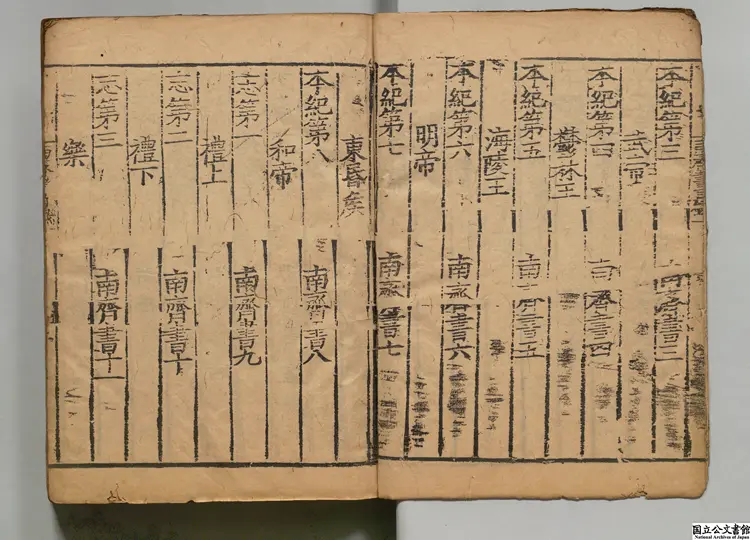 本紀第三 南齊書三
武帝
本紀第四 南齊書四
欝林王
本紀第五 南齊書五
海陵王
本紀第六 南齊書六
明帝
本紀第七 南齊書七
東昏矦
本紀第八 南齊書八
和帝
志第一 南齊書九
禮上
志第二 南齊書十
禮下
志第三 南齊書十一
樂
国立公文書館
National Archives of Japan